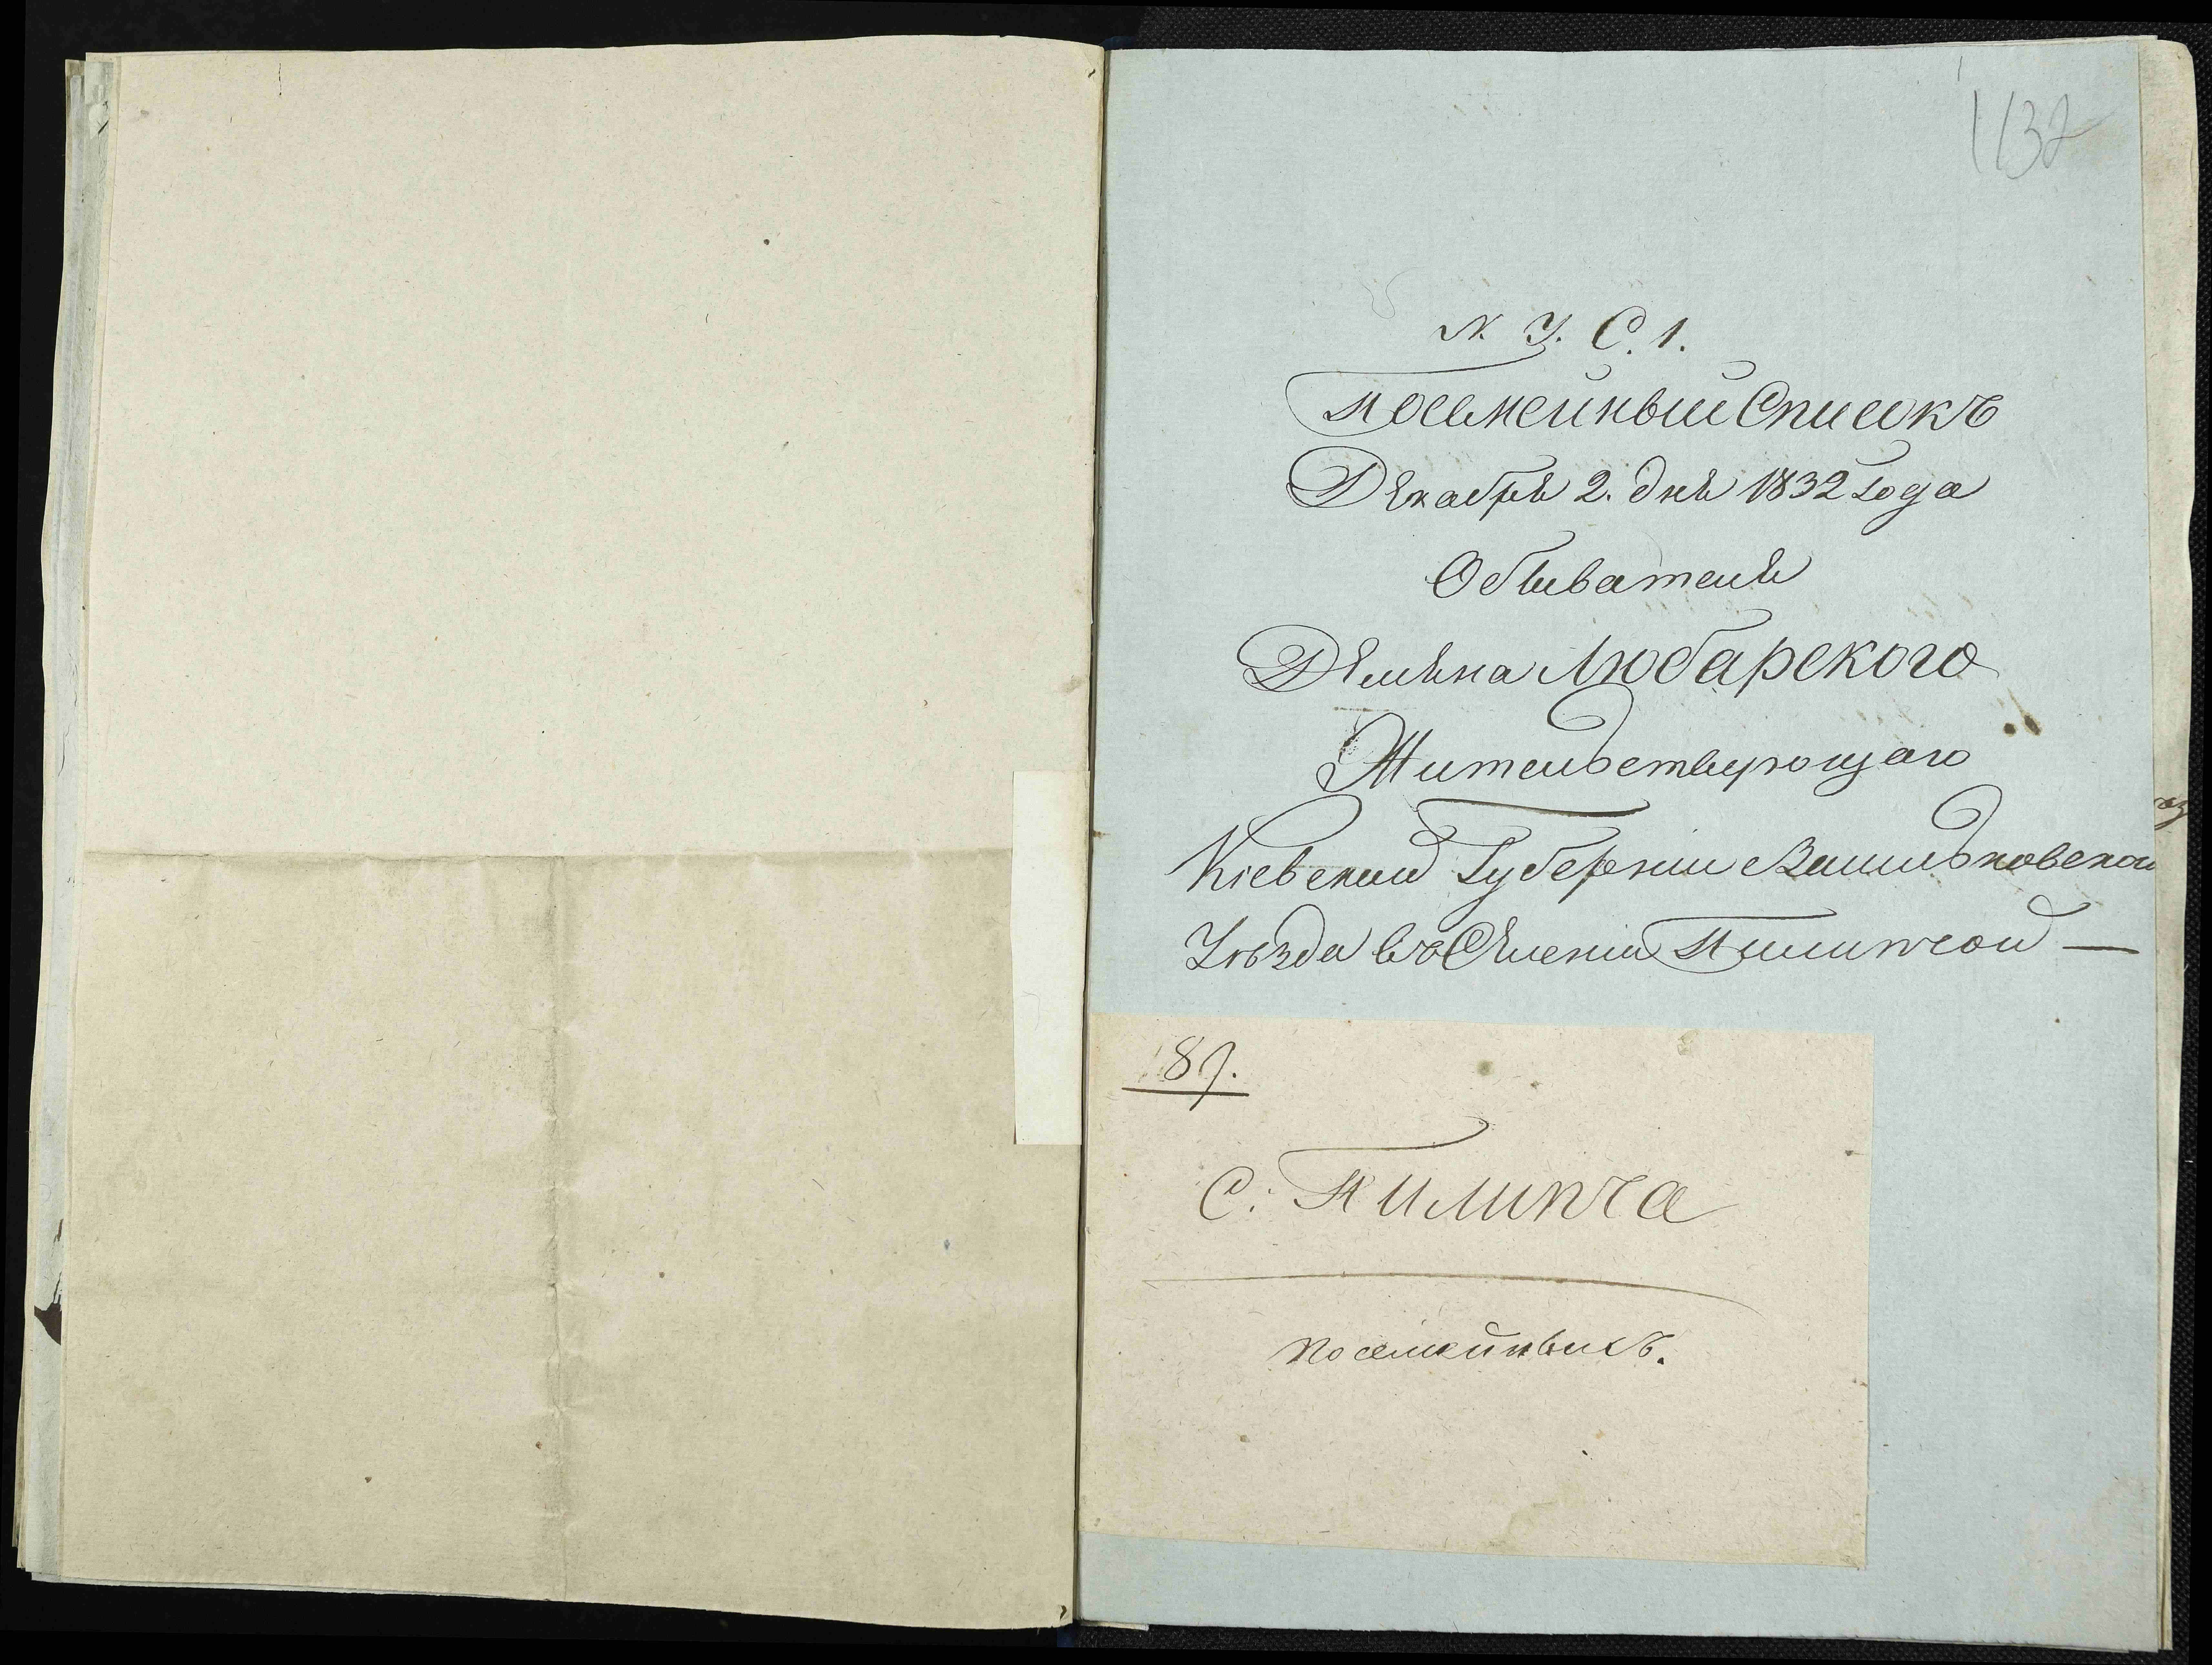 1132
N. У. С. 1.
Посемейный Списокъ
Декабря 2. дня 1832 года
Обывателя
Демяна Любарского
Жительствующаго
Кіевской Губерніи Васильковской
Уѣзда въ Селеніи Пилипчой —
87.
С: Пилипча
посемейныхъ.